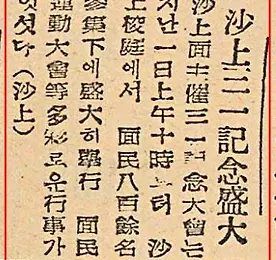 沙上三一記念盛大
沙上面主催三一記念大會는
지난一日上午十時부터 沙
上校庭에서 面民八百餘名
參集下에盛大히擧行 面民
運動大會等多彩로운行事가
잇섯다(沙上)